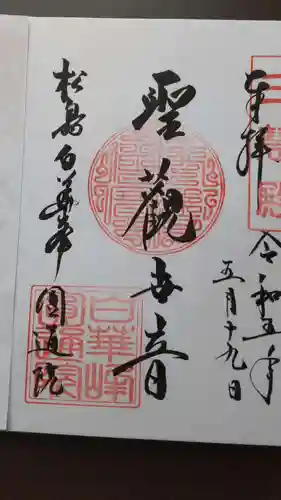 三慧殿
奉拝
令和五年
五月十九日
聖觀世音
松島白華峯
圓通院
白華峰
圓通院